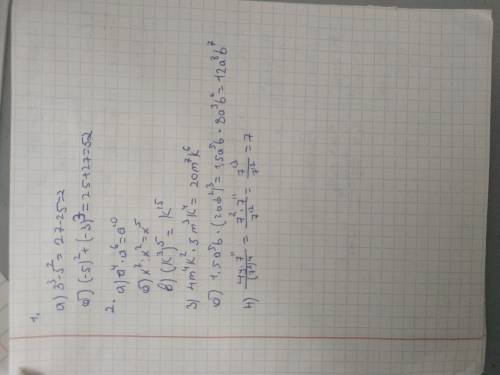 1.
а) 3³-5² = 27-25=2
б) (-5)² + (-3)³ = 25+27=52
2.
а) a⁴ · a⁶ = a¹⁰
б) x³ · x² = x⁵
в) (k³)⁵ = k¹⁵
3) 4m⁴k² · 5m³k⁴ = 20m⁷k⁶
б) 1,5a⁵b · (2ab²)³ = 1,5a⁵b · 8a³b⁶ = 12a⁸b⁷
4) 49·7¹¹/(7³)⁴ = 7²·7¹¹/7¹² = 7¹³/7¹² = 7